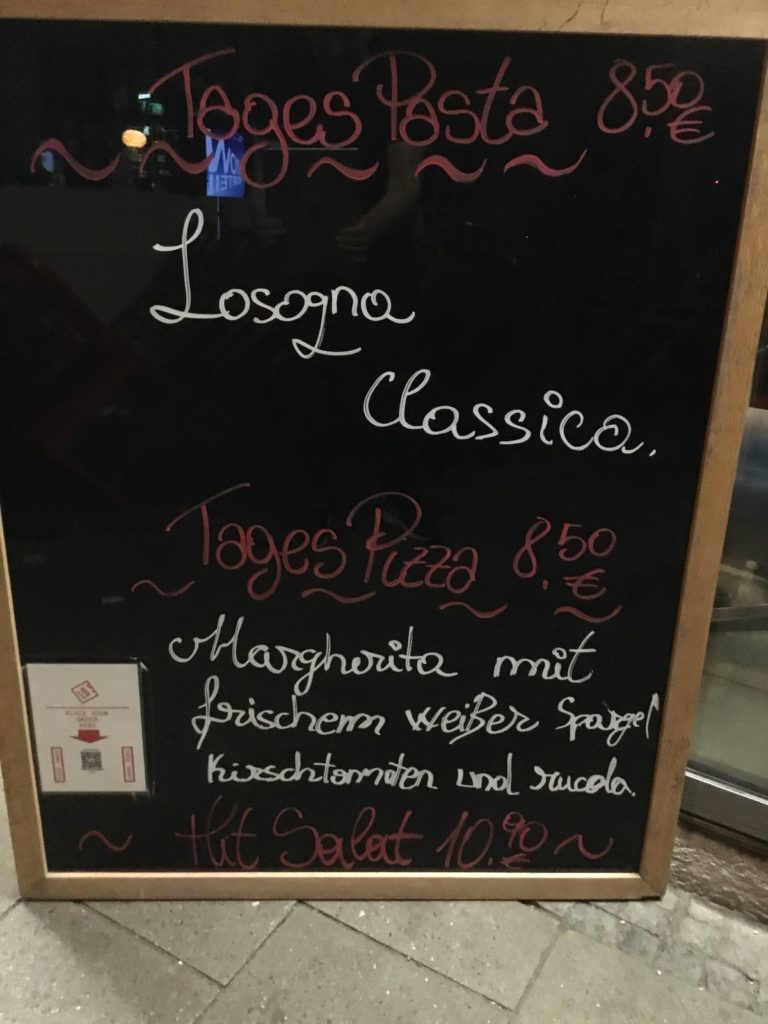 Tages Pasta 8.50 €
Lasagna
Classica.
Tages Pizza 8.50 €
Margherita mit
frischem weißer Spargel
Kirschtomaten und rucola.
Hit Salat 10.90 €
PLACE YOUR
ORDER
HERE